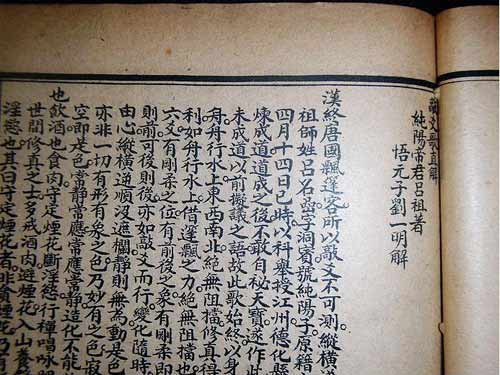 敲爻歌直解
純陽帝君呂祖著
悟元子劉一明解
漢終唐國飄蓬客所以敲爻不可測。縱橫
祖師姓呂名嵒字洞賓號純陽子原籍
四月十四日巳時以科舉授江州德化縣
煉成道道成之後不敢自秘天寶遂作此
未成道以前擬議之語故此歌始終以身
舟舟行水上東西南北絕無阻擋修真得
利如舟行水上借蓬飄之力絕無阻擋也
六爻有剛柔之位有前後之象有剛即
則前可後則後亦如敲爻而行變化隨時
由心縱橫逆順沒遮欄靜則無為動是色
亦非一切有形有象之色乃妙有之色寂
空即是色常靜常應常應常靜造化不能
也飲酒也食肉守定煙花斷淫慾行禪唱詠
世間修真之士多戒酒肉避煙花入山養
淫慾也其曰守定煙花者非貪煙花乃有